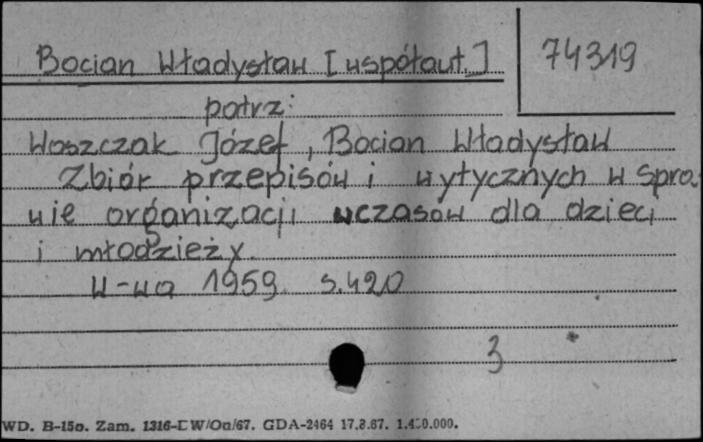 Bocian Władysław [współaut.]
74319
patrz:
Woszczak Józef, Bocian Władysław
Zbiór przepisów i wytycznych w spra-
wie organizacji wczasów dla dzieci
i młodzieży.
W-wa 1959 s.420
3
WD. B-15a. Zam. 1316-DW/Oa/67. GDA-2464 17.8.67.